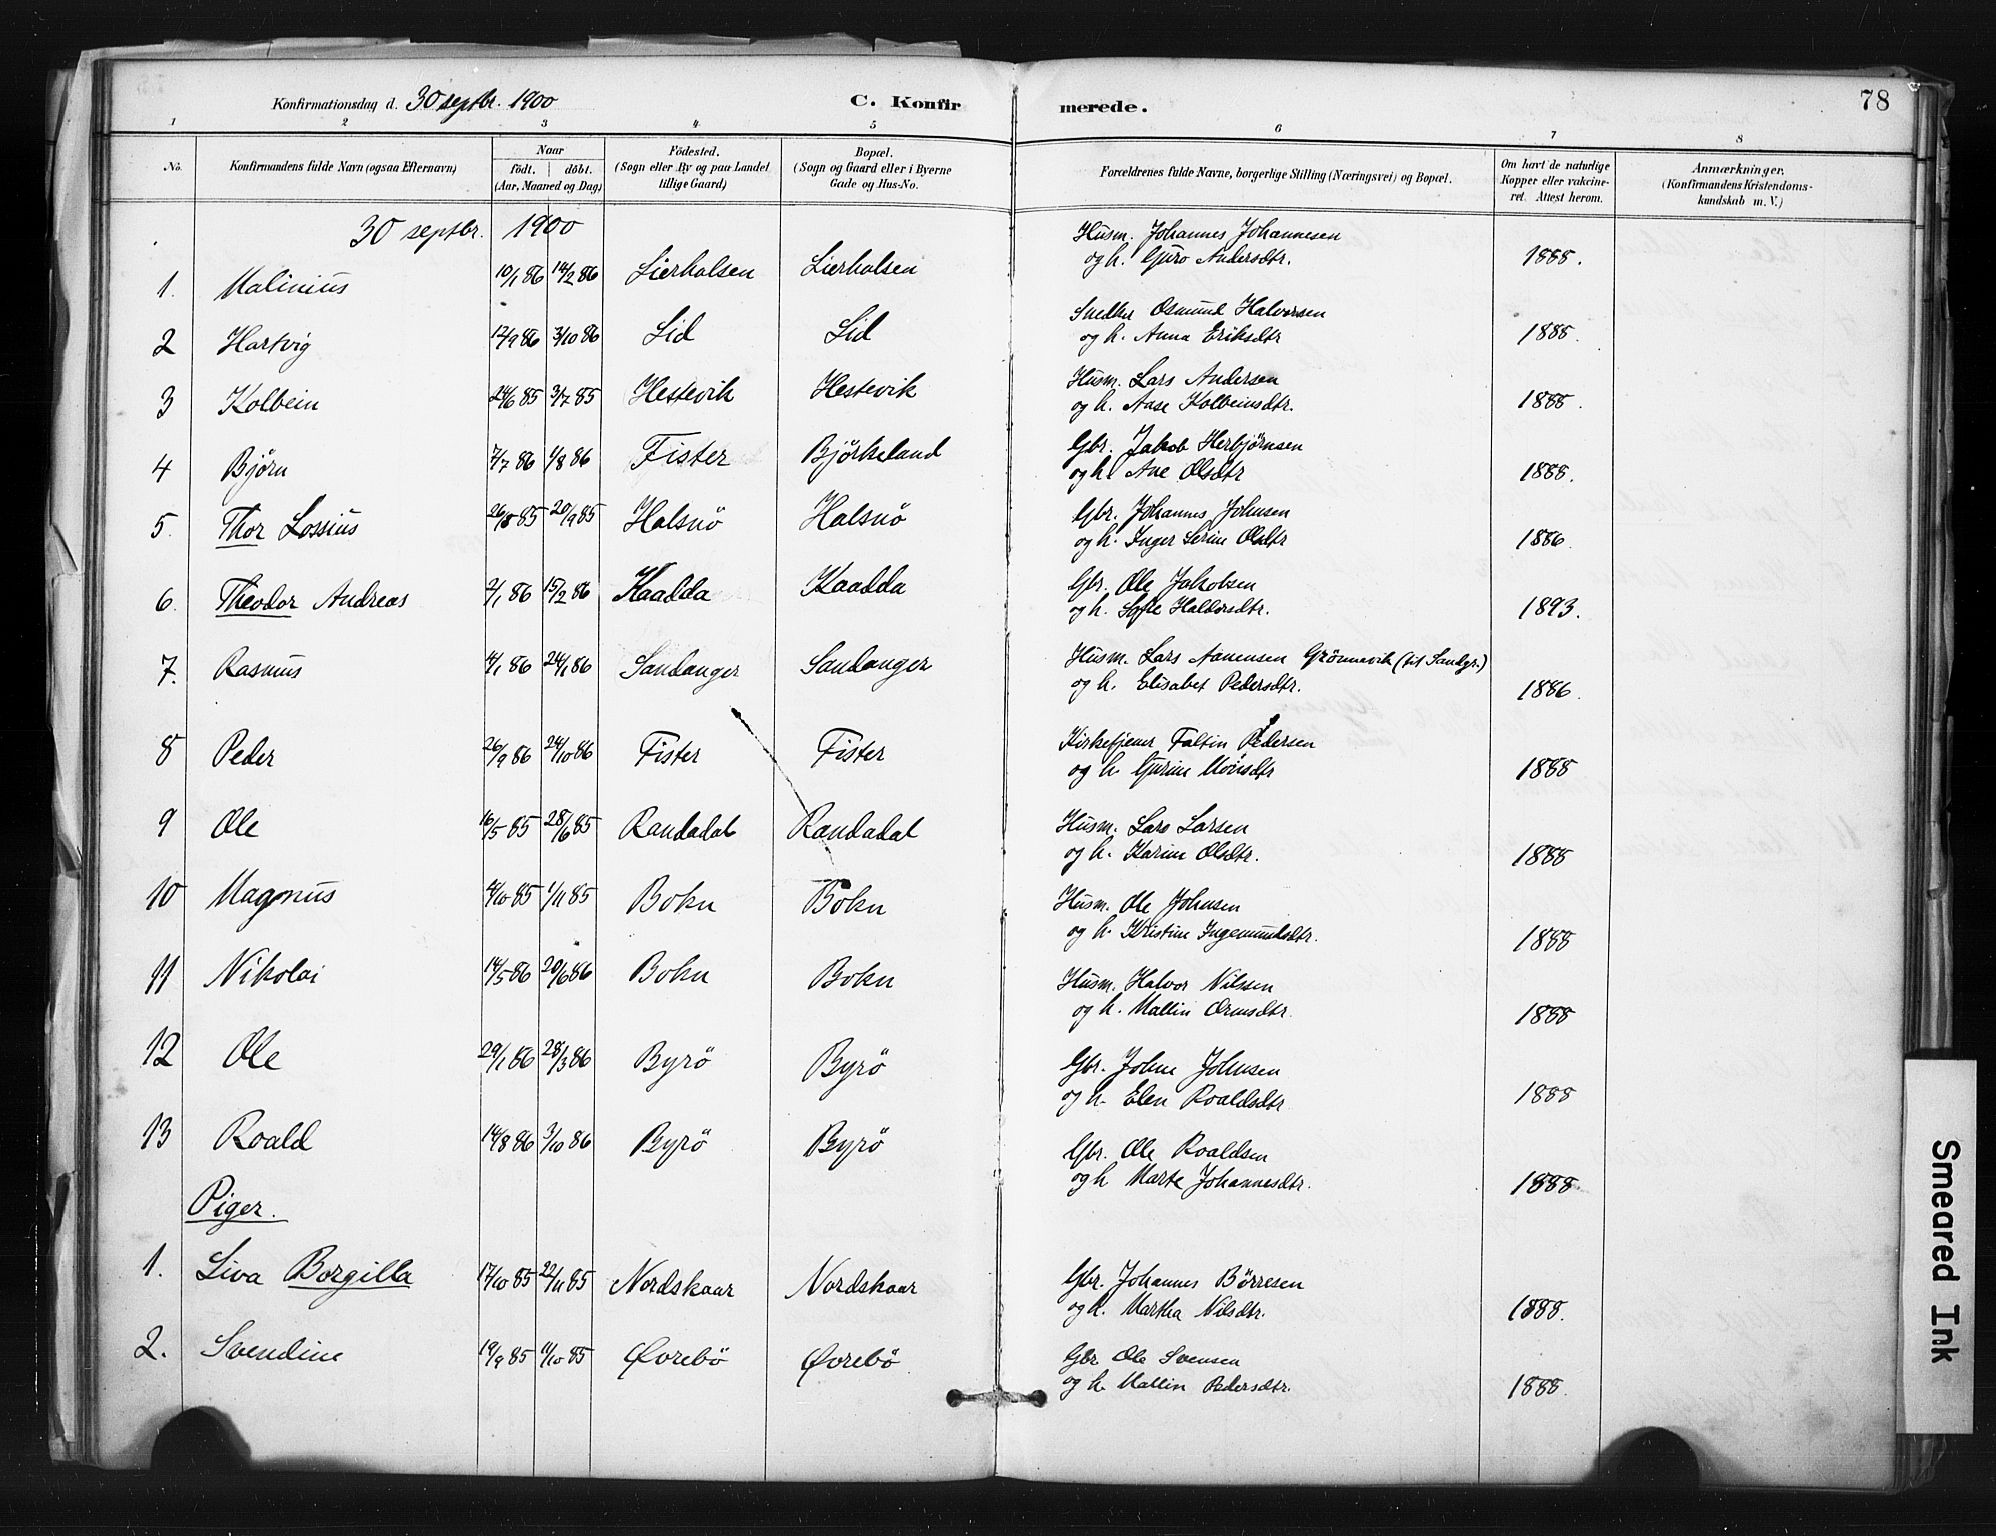 Konfirmationsdag d. 30 septbr. 1900 C. Konfirmerede. 78
1 2 3 4 5 6 7 8
No. Konfirmandens fulde Navn (ogsaa Efternavn) Naar födt. döbt. (Aar, Maaned og Dag) Födested. (Sogn eller By og paa Landet tillige Gaard) Bopæl. (Sogn og Gaard eller i Byerne Gade og Hus-No. Forældrenes fulde Navne, borgerlige Stilling (Næringsvei) og Bopæl. Om havt de naturlige Kopper eller vakcineret. Attest herom. Anmærkninger. (Konfirmandens Kristendomskundskab m. V.)
30 septbr. 1900
1. Malinius 10/1 86 14/2 86 Lierholsen Lierholsen Husm. Johannes Johannesen
og h. Guro Andersdtr. 1888.
2 Hartvig 12/9 86 3/10 86 Lid Lid Snedker Osmund Halvorsen
og h. Anna Eriksdtr 1888.
3 Kolbein 24/6 85 3/7 85 Hestevik Hestevik Husm. Lars Andersen
og h. Aase Kolbeinsdtr. 1888.
4 Björn 7/7 86 1/8 86 Fister Björkeland Gbr. Jakob Herbjörnsen
og h. Ane Olsdtr 1888.
5. Thor Lossius 26/8 85 20/9 85 Halsnö Halsnö Gbr. Johannes Johnsen
og h. Inger Serine Olsdtr 1886.
6. Theodor Andreas 2/1 86 15/2 86 Kaadda Kaadda Gbr. Ole Jakobsen
og h. Sofie Haldorsdtr. 1893.
7. Rasmus 4/1 86 24/1 86 Sandanger Sandanger Husm. Lars Aanensen Grönnevik (til Sandgr.)
og h. Elisabet Pedersdtr. 1886.
8 Peder 26/9 86 24/10 86 Fister Fister Kirketjener Faltin Pedersen
og h. Gurine 1888
9 Ole 16/5 85 28/6 85 Randadal Randadal Husm. Lars Larsen
og h. Karine Olsdtr. 1888
10 Magnus 4/10 85 1/11 85 Bokn Bokn Husm. Ole Johnsen
og h. Kristine Ingemundsdtr. 1888
11 Nikolai 14/5 86 20/6 86 Bokn Bokn Husm. Halvor Nilssen
og h. Mallin Ormsdtr. 1888
12 Ole 29/1 86 28/3 86 Byrö Byrö Gbr. John Johnsen
og h. Elen Roaldsdtr 1888
13 Roald 14/8 86 3/10 86 Byrö Byrö Gbr. Ole Roaldsen
og h Marta Johannesdtr. 1888
Piger.
1. Liva Borgilla 17/10 85 22/11 85 Nordskaar Nordskaar Gbr. Johannes Börresen
og h. Martha Nilsdtr. 1888.
2. Svendine 19/9 85 11/10 85 Øvrebö Øvrebö Gbr Ole Svensen
og h. Mallin Pedersdtr. 1888.
Smeared Ink